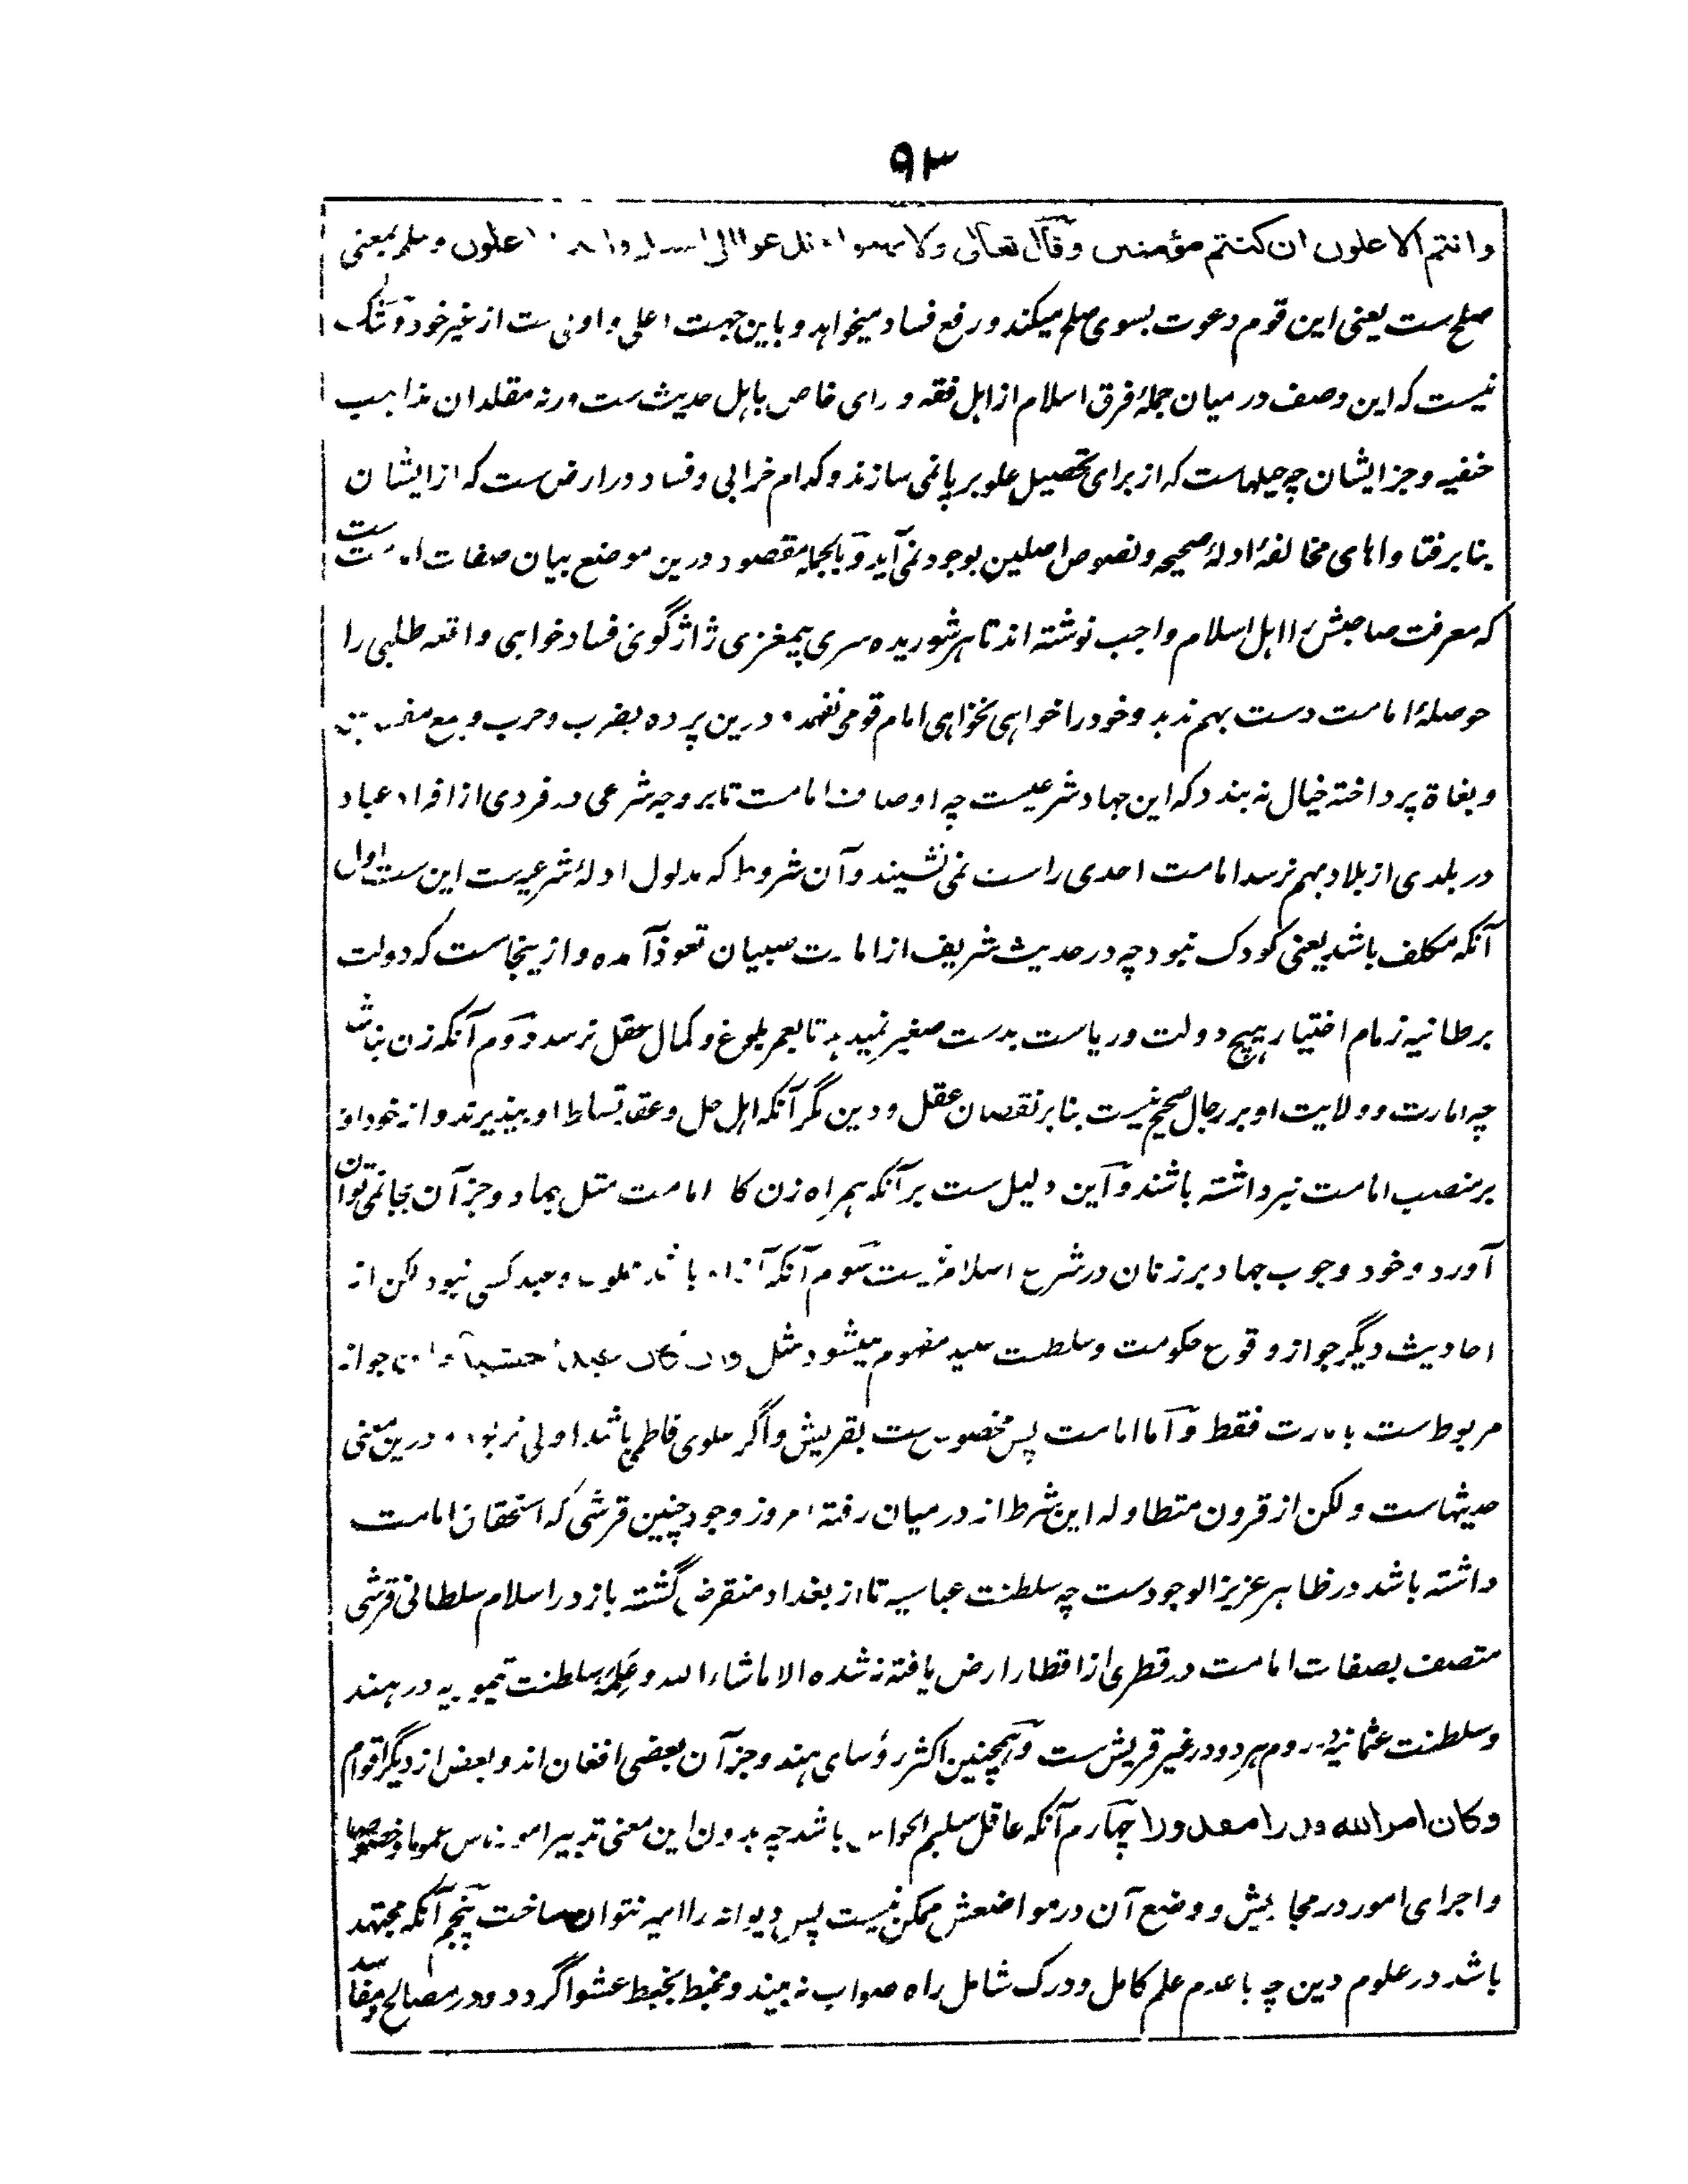 ۹۳
وانتم الاعلون ان کنتم مؤمنین وقال تعالی ولا تهنوا وتدعوا الی السلم وانتم الاعلون وسلم بمعنی
صلح ست یعنی این قوم دعوت بسوی صلح میکند و رفع فساد میخواهد و باین جهت اعلی و اولی ست از غیر خود و شک
نیست که این وصف در میان جملهٔ فرق اسلام از اهل فقه و رای خاص باهل حدیث ست ورنه مقلدان مذاهب
حنفیه و جز ایشان چه حیلهاست که از برای تحصیل علو بر پا نمی سازند و کدام خرابی و فساد در ارض ست که از ایشان
بنا بر فتاواهای مخالفهٔ ادلهٔ صحیحه و نصوص اصلین بوجود نمی آید و بالجمله مقصود درین موضع بیان صفات ست
که معرفت صاحبش را اهل اسلام واجب نوشته اند تا هر شوریده سری بیمغزی ژاژگوئی فساد خواهی واقعه طلبی را
حوصلهٔ امامت دست بهم ندهد و خود را خواهی نخواهی امام قومی نفهمد و درین پرده بضرب و حرب و
و بغاة پرداخته خیال نه بندد که این جهاد شرعیست چه اوصاف امامت تا بر وجه شرعی در فردی از افراد عباد
در بلدی از بلاد بهم نرسد امامت احدی راست نمی نشیند و آن شروط که مدلول ادلهٔ شرعیه ست این ست اول
آنکه مکلف باشد یعنی کودک نبود چه در حدیث شریف از امارت صبیان تعوذ آمده و از ینجاست که دولت
برطانیه زمام اختیار هیچ دولت و ریاست بدست صغیر نمیدهد تا بعمر بلوغ و کمال عقل نرسد دوم آنکه زن نباشد
چه امارت و ولایت او بر رجال صحیح نیست بنا بر نقصان عقل و دین مگر آنکه اهل حل و عقد تسلط او بپذیرند و از خود او
بر منصب امامت نبرداشته باشند و این دلیل ست بر آنکه همراه زن کار امامت مثل جهاد و جز آن بجا نمی توان
آورد و خود وجوب جهاد بر زنان در شرع اسلام نیست سوم آنکه آزاد باشد مملوک و عبد کسی نبود لکن از
احادیث دیگر جواز وقوع حکومت و سلطنت عبید مفهوم میشود مثل وان کان عبدا حبشیا و این جواز
مربوط ست بامارت فقط و اما امامت پس مخصوص ست بقریش و اگر علوی فاطمی باشد اولی تر بود و درین معنی
حدیثهاست ولکن از قرون متطاوله این شرط از درمیان رفته امروز وجود چنین قرشی که استحقاق امامت
داشته باشد در ظاهر عزیز الوجود ست چه سلطنت عباسیه تا از بغداد منقرض گشته باز در اسلام سلطانی قرشی
متصف بصفات امامت در قطری از اقطار ارض یافته نشده الا ماشاء الله و سلطنت تیموریه در هند
و سلطنت عثمانیه در روم هر دو در غیر قریش ست و همچنین اکثر رؤسای هند و جز آن بعضی افغان اند و بعض از دیگر اقوام
وکان امر الله قدرا مقدورا چهارم آنکه عاقل سلیم الحواس باشد چه بدون این معنی تدبیر امور ناس عموما و خصوصا
و اجرای امور در مجاریش و وضع آن در مواضعش ممکن نیست پس دیوانه را امیر نتوان ساخت پنجم آنکه مجتهد
باشد در علوم دین چه با عدم علم کامل و درک شامل راه صواب نه بیند و مخبط بخبط عشوا گردد و در مصالح و مفاسد